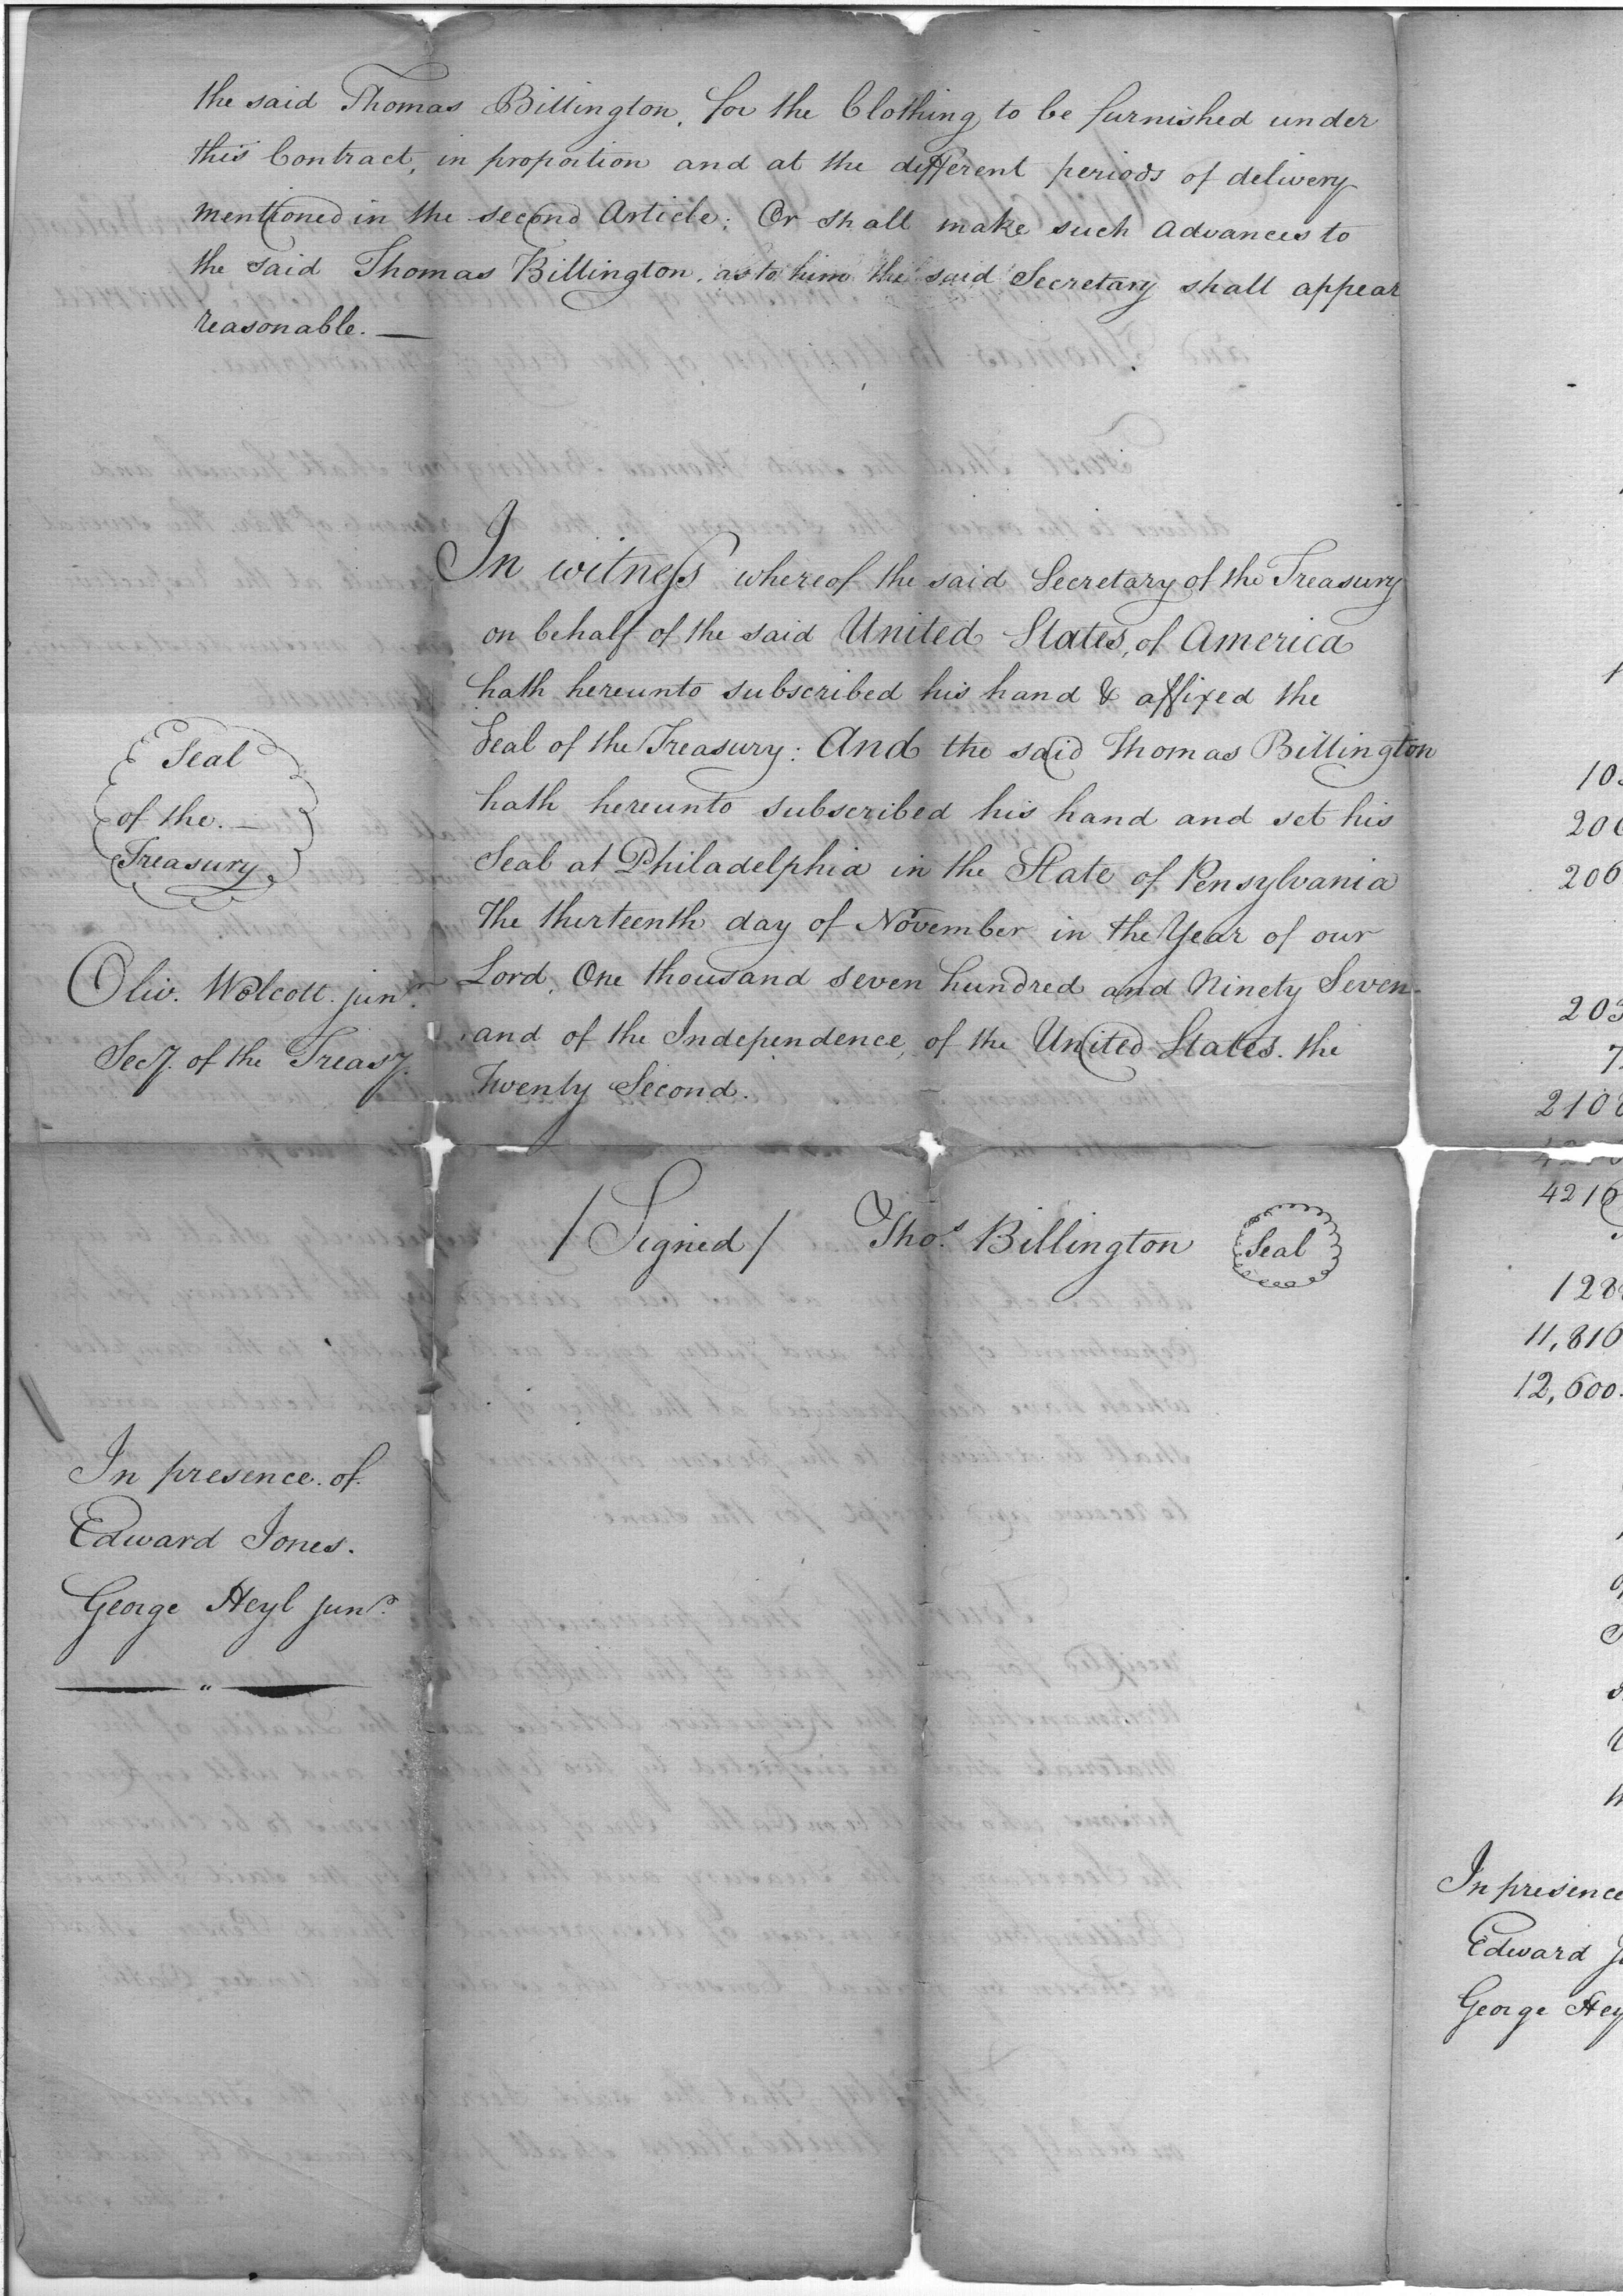 the said Thomas Billington, for the Clothing to be furnished under
this Contract, in proportion and at the different periods of delivery
mentioned in the second Article; Or shall make such Advances to
the said Thomas Billington, as to him the said Secretary shall appear
reasonable. —
In witness whereof the said Secretary of the Treasury
on behalf of the said United States, of America
hath hereunto subscribed his hand & affixed the
Seal of the Treasury: And the said Thomas Billington
hath hereunto subscribed his hand and set his
Seal at Philadelphia in the State of Pensylvania
the thirteenth day of November in the Year of our
Lord, One thousand seven hundred and Ninety Seven-
and of the Independence, of the United States. the
Twenty Second.
Seal
of the. —
Treasury
Oliv. Wolcott. junr.
Secy. of the Treasy.
/ Signed / Thos. Billington Seal
In presence. of.
Edward Jones.
George Heyl junr.
203
2108
4216
11,810
12,600.
In presence
Edward
George Hey